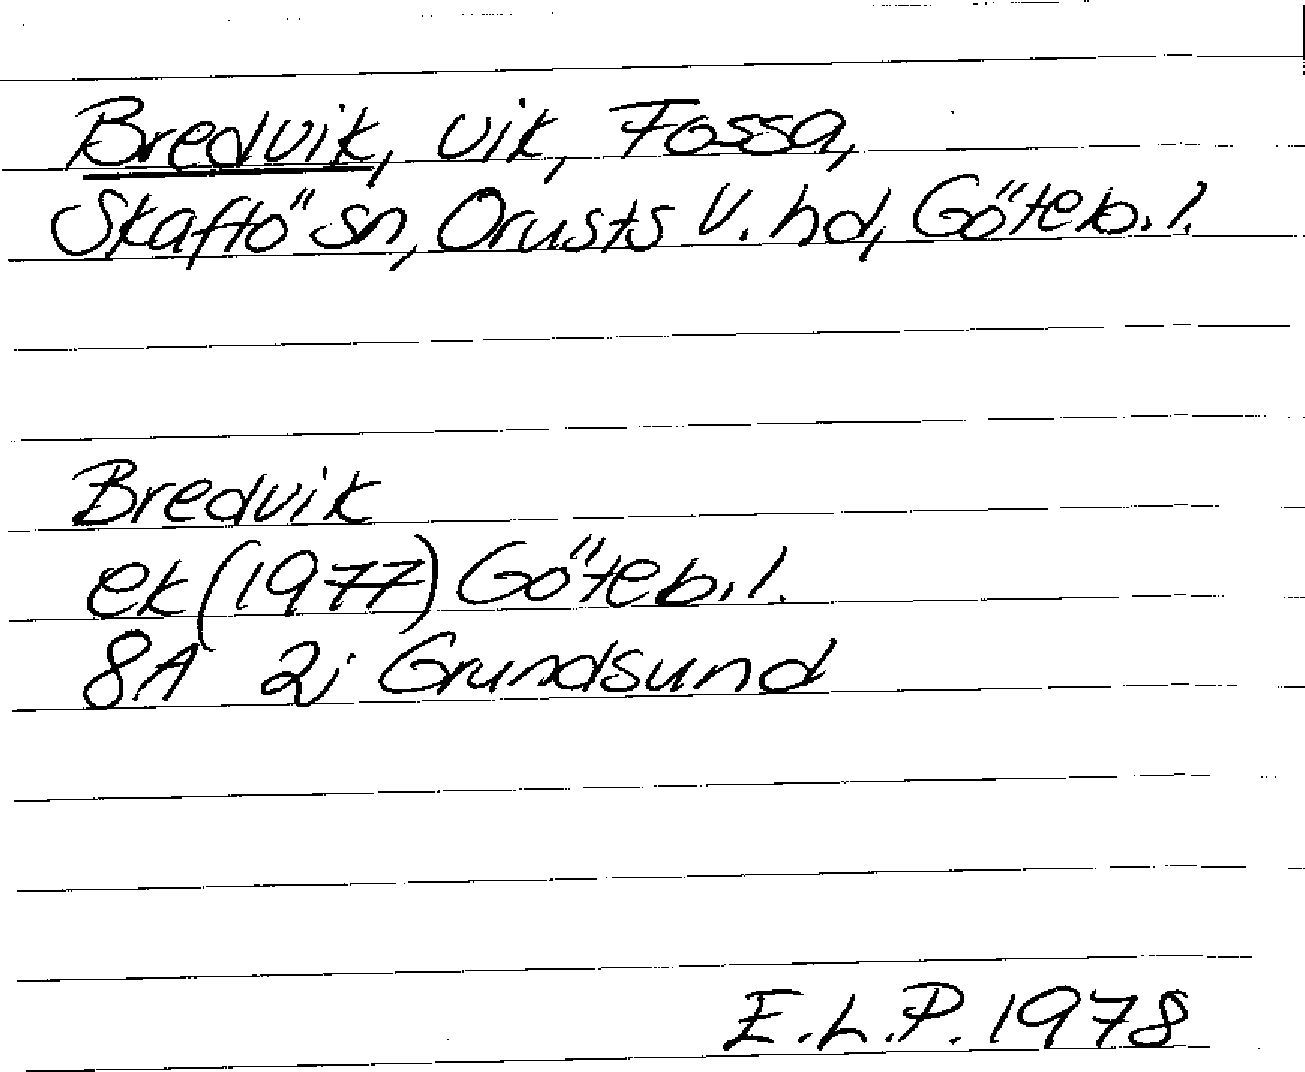 Bredvik, vik, Fossa,
Skaftö sn, Orusts V. hd, Göteb. l.
Bredvik
ek (1977) Göteb. l.
8A 2j Grundsund
E.L.P. 1978